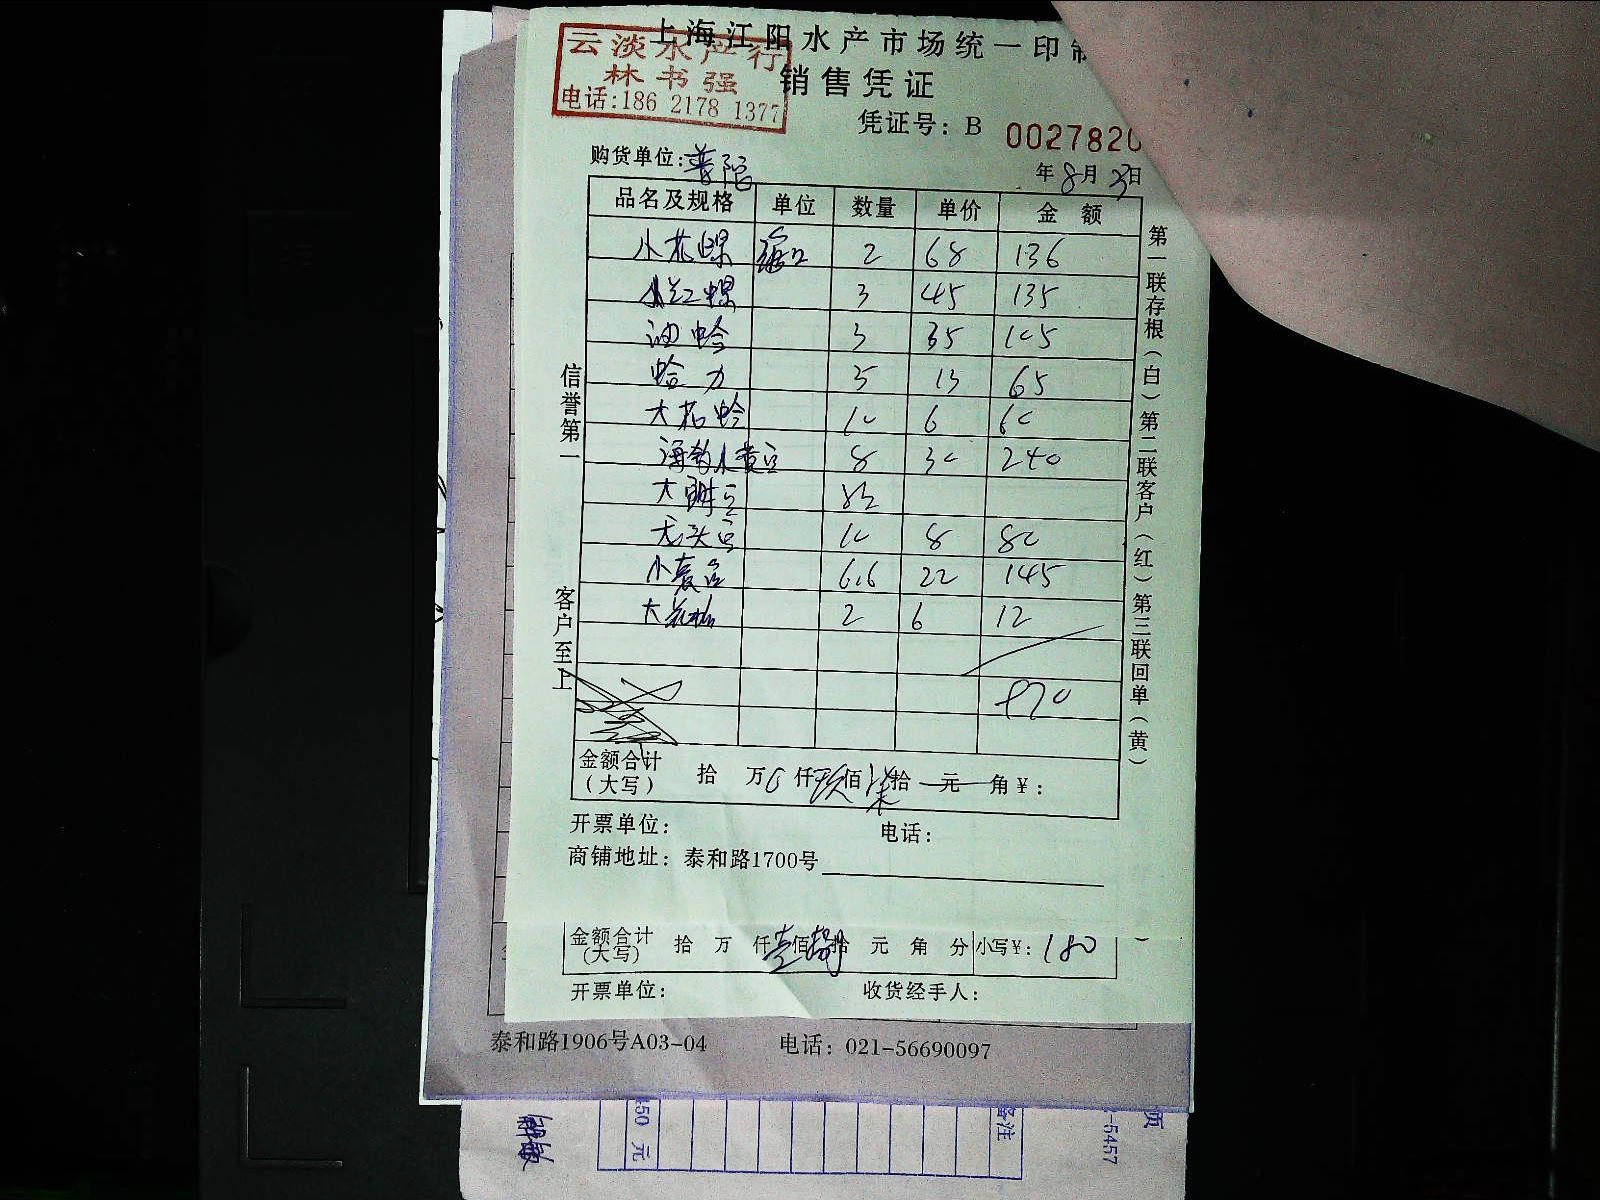 上海江阳水产市场统一印制
云淡水产行
林书强
电话:186 2178 1377
销售凭证
凭证号: B 0027820
购货单位: 普陀
年 8月 3日
品名及规格 单位 数量 单价 金 额
小花螺 2 68 136
小红螺 3 45 135
油蛤 3 35 105
蛤力 5 13 65
大花蛤 10 6 60
海钓小黄豆 8 30 240
大 豆
无头豆 10 8 80
小袁豆 6.6 22 145
大花蛤 2 6 12
970
金额合计(大写) 拾 万 0 仟 玖 佰 柒 拾 元 角 ¥:
开票单位: 电话:
商铺地址: 泰和路1700号
信誉第一 客户至上
第一联存根(白) 第二联客户(红) 第三联回单(黄)
金额合计(大写) 拾 万 仟 壹 佰 捌 拾 元 角 分 小写¥: 180
开票单位: 收货经手人:
泰和路1906号A03-04 电话: 021-56690097
450 元
备注
-5457
页